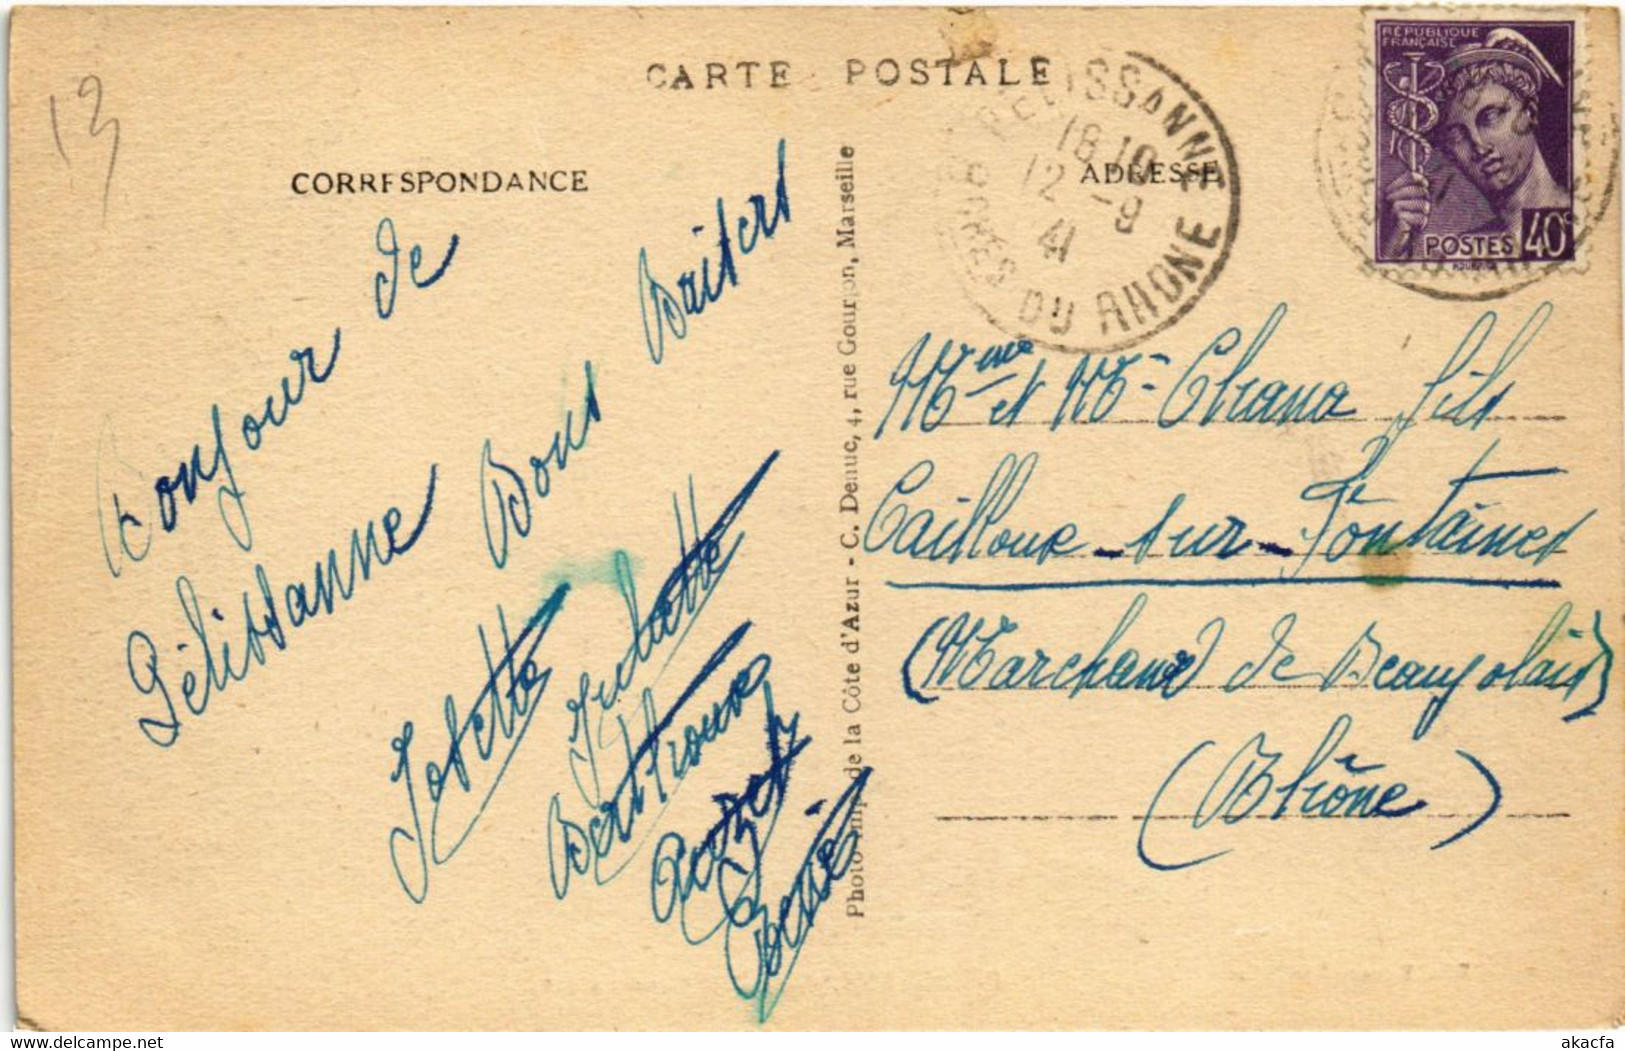 13
CARTE POSTALE
CORRESPONDANCE
ADRESSE
PELISSANNE
18 10
12 -9
41
BOUCHES DU RHONE
RÉPUBLIQUE
FRANÇAISE
POSTES 40c
Bonjour de
Pélissanne Bons Baisers
Josette Juliette
Photo-Imp. de la Côte d'Azur - C. Denuc, 4, rue Gourjon, Marseille
Mme et Mr Chana fils
Cailloux-sur-Fontaines
(Marchand de Beaujolais)
(Rhône)
akacfa